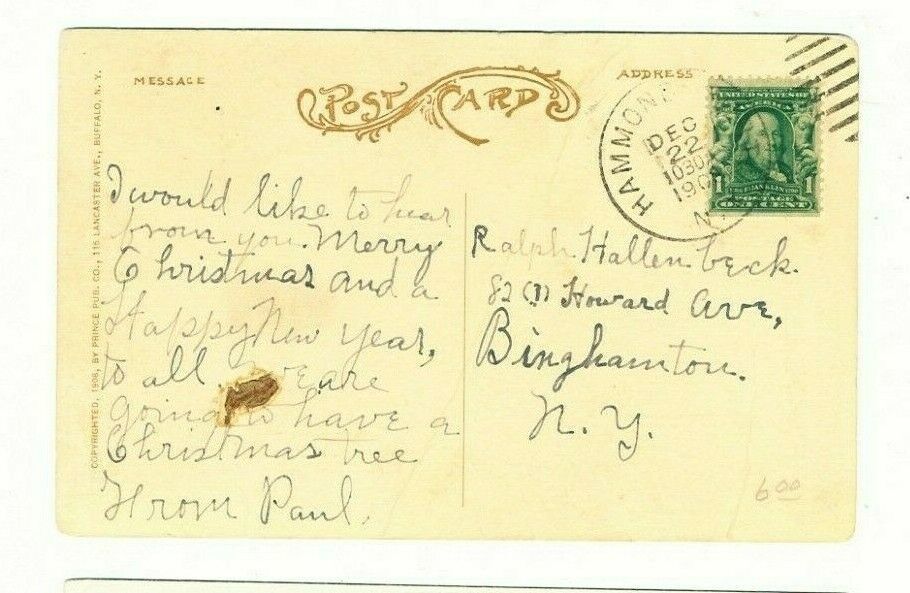 MESSAGE
POST CARD
ADDRESS
HAMMON
DEC
22
1030
190
N.
UNITED STATES OF AMERICA
1 1
POSTAGE
ONE CENT
COPYRIGHTED, 1908, BY PRINCE PUB. CO., 116 LANCASTER AVE., BUFFALO, N. Y.
I would like to hear
from you. Merry
Christmas and a
Happy New Year,
to all we are
going to have a
Christmas tree
From Paul.
Ralph Hallenbeck.
82 Howard Ave,
Binghamton.
N. Y.
6 00